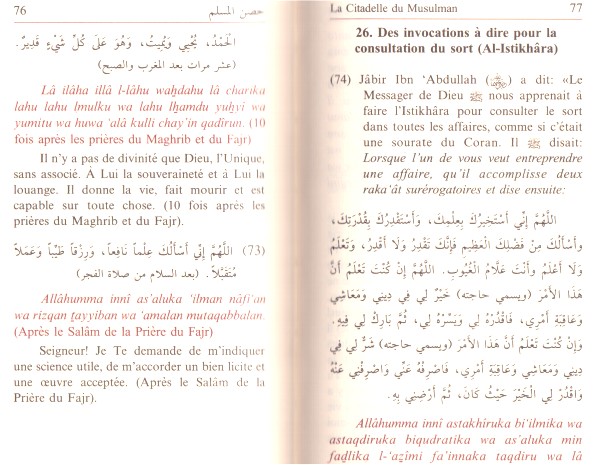 76 حصن المسلم
الْحَمْدُ، يُحْيِي وَيُمِيتُ، وَهُوَ عَلَى كُلِّ شَيْءٍ قَدِيرٌ.
(عشر مرات بعد المغرب والصبح)
Lâ ilâha illâ l-lâhu waḥdahu lâ charika
lahu lahu lmulku wa lahu lḥamdu yuḥyî wa
yumitu wa huwa ‘alâ kulli chay’in qadîrun. (10
fois après les prières du Maghrib et du Fajr)
Il n’y a pas de divinité que Dieu, l’Unique,
sans associé. À Lui la souveraineté et à Lui la
louange. Il donne la vie, fait mourir et est
capable sur toute chose. (10 fois après les
prières du Maghrib et du Fajr).
(73) اللَّهُمَّ إِنِّي أَسْأَلُكَ عِلْماً نَافِعاً، وَرِزْقاً طَيِّباً وَعَمَلاً
مُتَقَبَّلاً. (بعد السلام من صلاة الفجر)
Allâhumma innî as’aluka ‘ilman nâfi‘an
wa rizqan ṭayyiban wa ‘amalan mutaqabbalan.
(Après le Salâm de la Prière du Fajr)
Seigneur! Je Te demande de m’indiquer
une science utile, de m’accorder un bien licite et
une œuvre acceptée. (Après le Salâm de la
Prière du Fajr).
La Citadelle du Musulman 77
26. Des invocations à dire pour la
consultation du sort (Al-Istikhâra)
(74) Jâbir Ibn ‘Abdullah a dit: «Le
Messager de Dieu ﷺ nous apprenait à
faire l’Istikhâra pour consulter le sort
dans toutes les affaires, comme si c’était
une sourate du Coran. Il ﷺ disait:
Lorsque l’un de vous veut entreprendre
une affaire, qu’il accomplisse deux
raka‘ât surérogatoires et dise ensuite:
اللَّهُمَّ إِنِّي أَسْتَخِيرُكَ بِعِلْمِكَ، وَأَسْتَقْدِرُكَ بِقُدْرَتِكَ،
وَأَسْأَلُكَ مِنْ فَضْلِكَ الْعَظِيمِ فَإِنَّكَ تَقْدِرُ وَلَا أَقْدِرُ، وَتَعْلَمُ
وَلَا أَعْلَمُ وَأَنْتَ عَلَّامُ الْغُيُوبِ. اللَّهُمَّ إِنْ كُنْتَ تَعْلَمُ أَنَّ
هَذَا الأَمْرَ (ويسمي حاجته) خَيْرٌ لِي فِي دِينِي وَمَعَاشِي
وَعَاقِبَةِ أَمْرِي، فَاقْدُرْهُ لِي وَيَسِّرْهُ لِي، ثُمَّ بَارِكْ لِي فِيهِ.
وَإِنْ كُنْتَ تَعْلَمُ أَنَّ هَذَا الأَمْرَ (ويسمي حاجته) شَرٌّ لِي فِي
دِينِي وَمَعَاشِي وَعَاقِبَةِ أَمْرِي، فَاصْرِفْهُ عَنِّي وَاصْرِفْنِي عَنْهُ
وَاقْدُرْ لِي الْخَيْرَ حَيْثُ كَانَ، ثُمَّ أَرْضِنِي بِهِ.
Allâhumma innî astakhiruka bi‘ilmika wa
astaqdiruka biqudratika wa as’aluka min
faḍlika l-‘aẓîmi fa’innaka taqdiru wa lâ